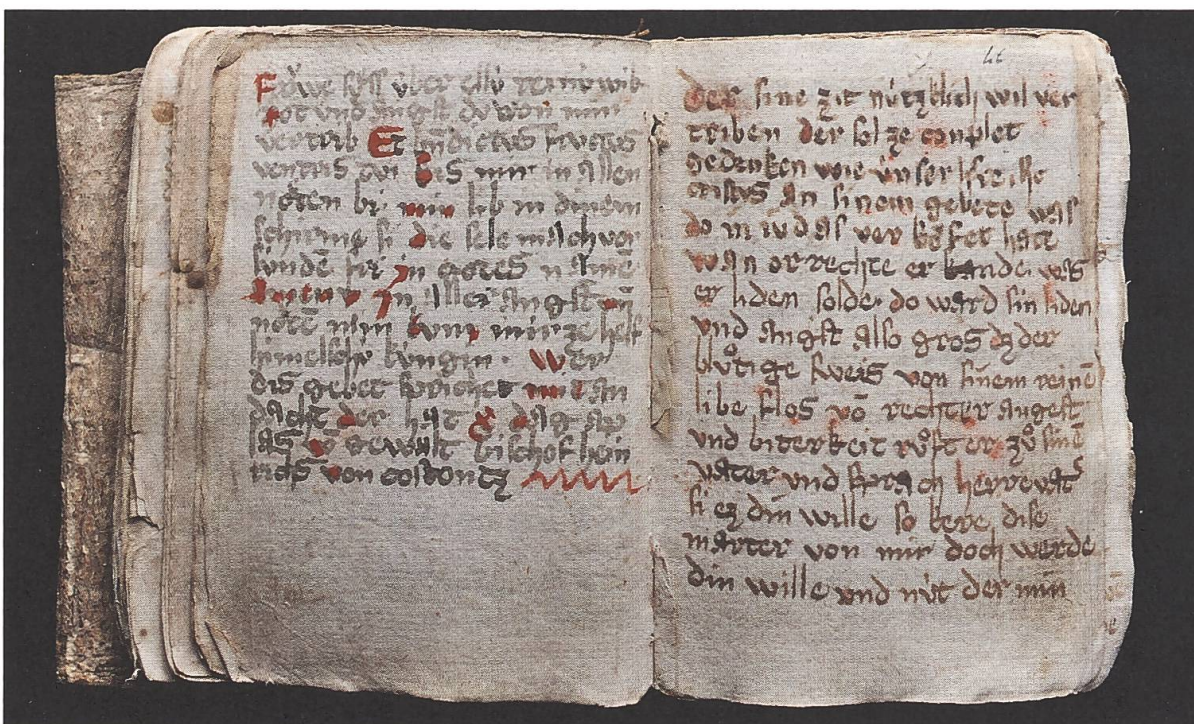 Frǒwe ůber ellv́ reinv́ wib
not vnd angst dv von mir
vertrib Et bn̄dictus fructus
ventris tvi Bis mir in allen
nöten bi min lib in dinem
schirme si die sele mach vor
sv́nde fri in gotes namē
In aller angst vn̄
nötē min kvm mir ze helf
himelschv́ kv́ngin. Wer
dis gebet sprichet mit an
dacht der hat dag ap
las vō gewalt bischof hein
richs von costentz
66
Der sine zit nv́tzklich wil ver
triben der sol ze conplet
gedenken wie v́nser herre
cristvs an sinem gebete was
do in ivdas ver köfet hate
wan or rechte er kande was
er liden solde. do ward sin liden
vnd angst also gros dz der
blůtige sweis von sinem reinē
libe flos vō rechter angest
vnd biterkeit růft er zů sinē
vater vnd sprach herre vatꝰ
si ez din wille so kere dise
marter von mir doch werde
din wille vnd nv́t der min